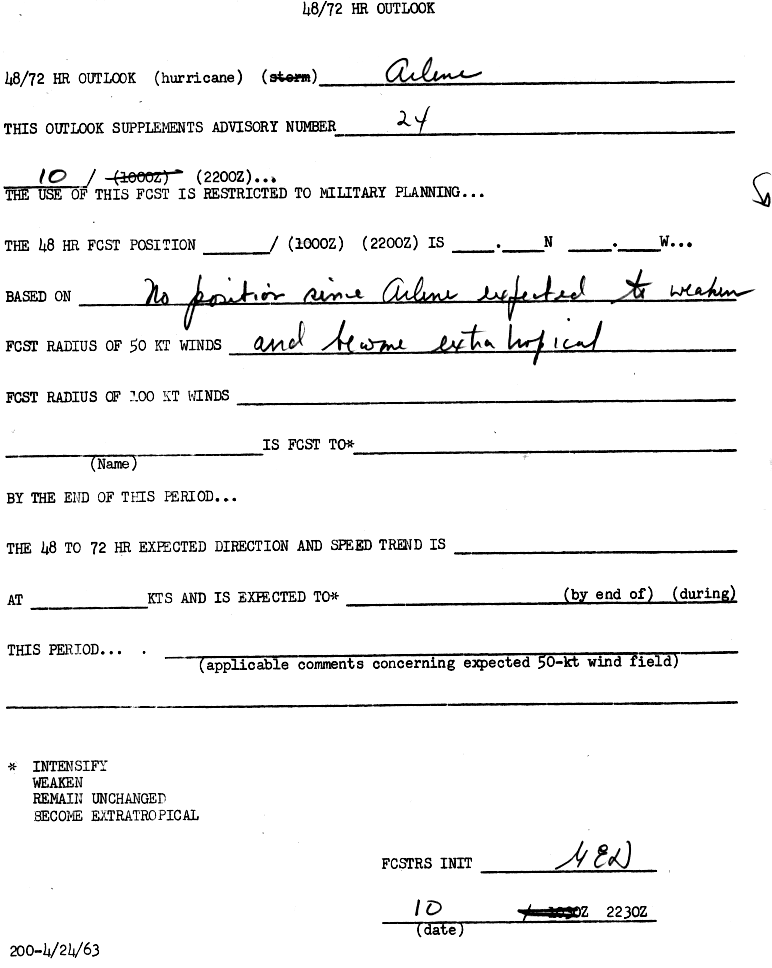 48/72 HR OUTLOOK
48/72 HR OUTLOOK (hurricane) (storm) Arlene
THIS OUTLOOK SUPPLEMENTS ADVISORY NUMBER 24
10 / (1000Z) (2200Z)...
THE USE OF THIS FCST IS RESTRICTED TO MILITARY PLANNING...
THE 48 HR FCST POSITION ______/ (1000Z) (2200Z) IS ____.____N ____.____W...
BASED ON No position since Arlene expected to weaken
FCST RADIUS OF 50 KT WINDS and become extra tropical
FCST RADIUS OF 100 KT WINDS
IS FCST TO*
(Name)
BY THE END OF THIS PERIOD...
THE 48 TO 72 HR EXPECTED DIRECTION AND SPEED TREND IS
AT __________ KTS AND IS EXPECTED TO* __________ (by end of) (during)
THIS PERIOD... .
(applicable comments concerning expected 50-kt wind field)
* INTENSIFY
WEAKEN
REMAIN UNCHANGED
BECOME EXTRATROPICAL
FCSTRS INIT
10 / 1030Z 2230Z
(date)
200-4/24/63